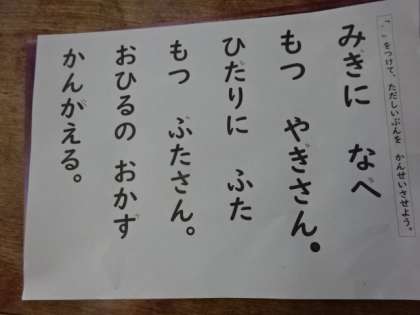 「゛」をつけて、ただしいぶんを かんせいさせよう。
みぎに なべ
もつ やぎさん。
ひだりに ふた
もつ ぶたさん。
おひるの おかず
かんがえる。